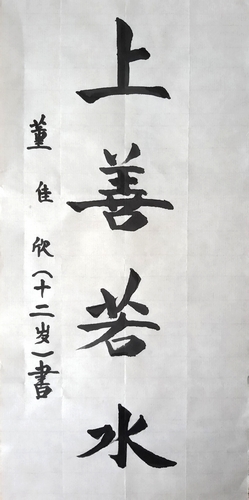 上善若水
董佳欣（十二岁）書